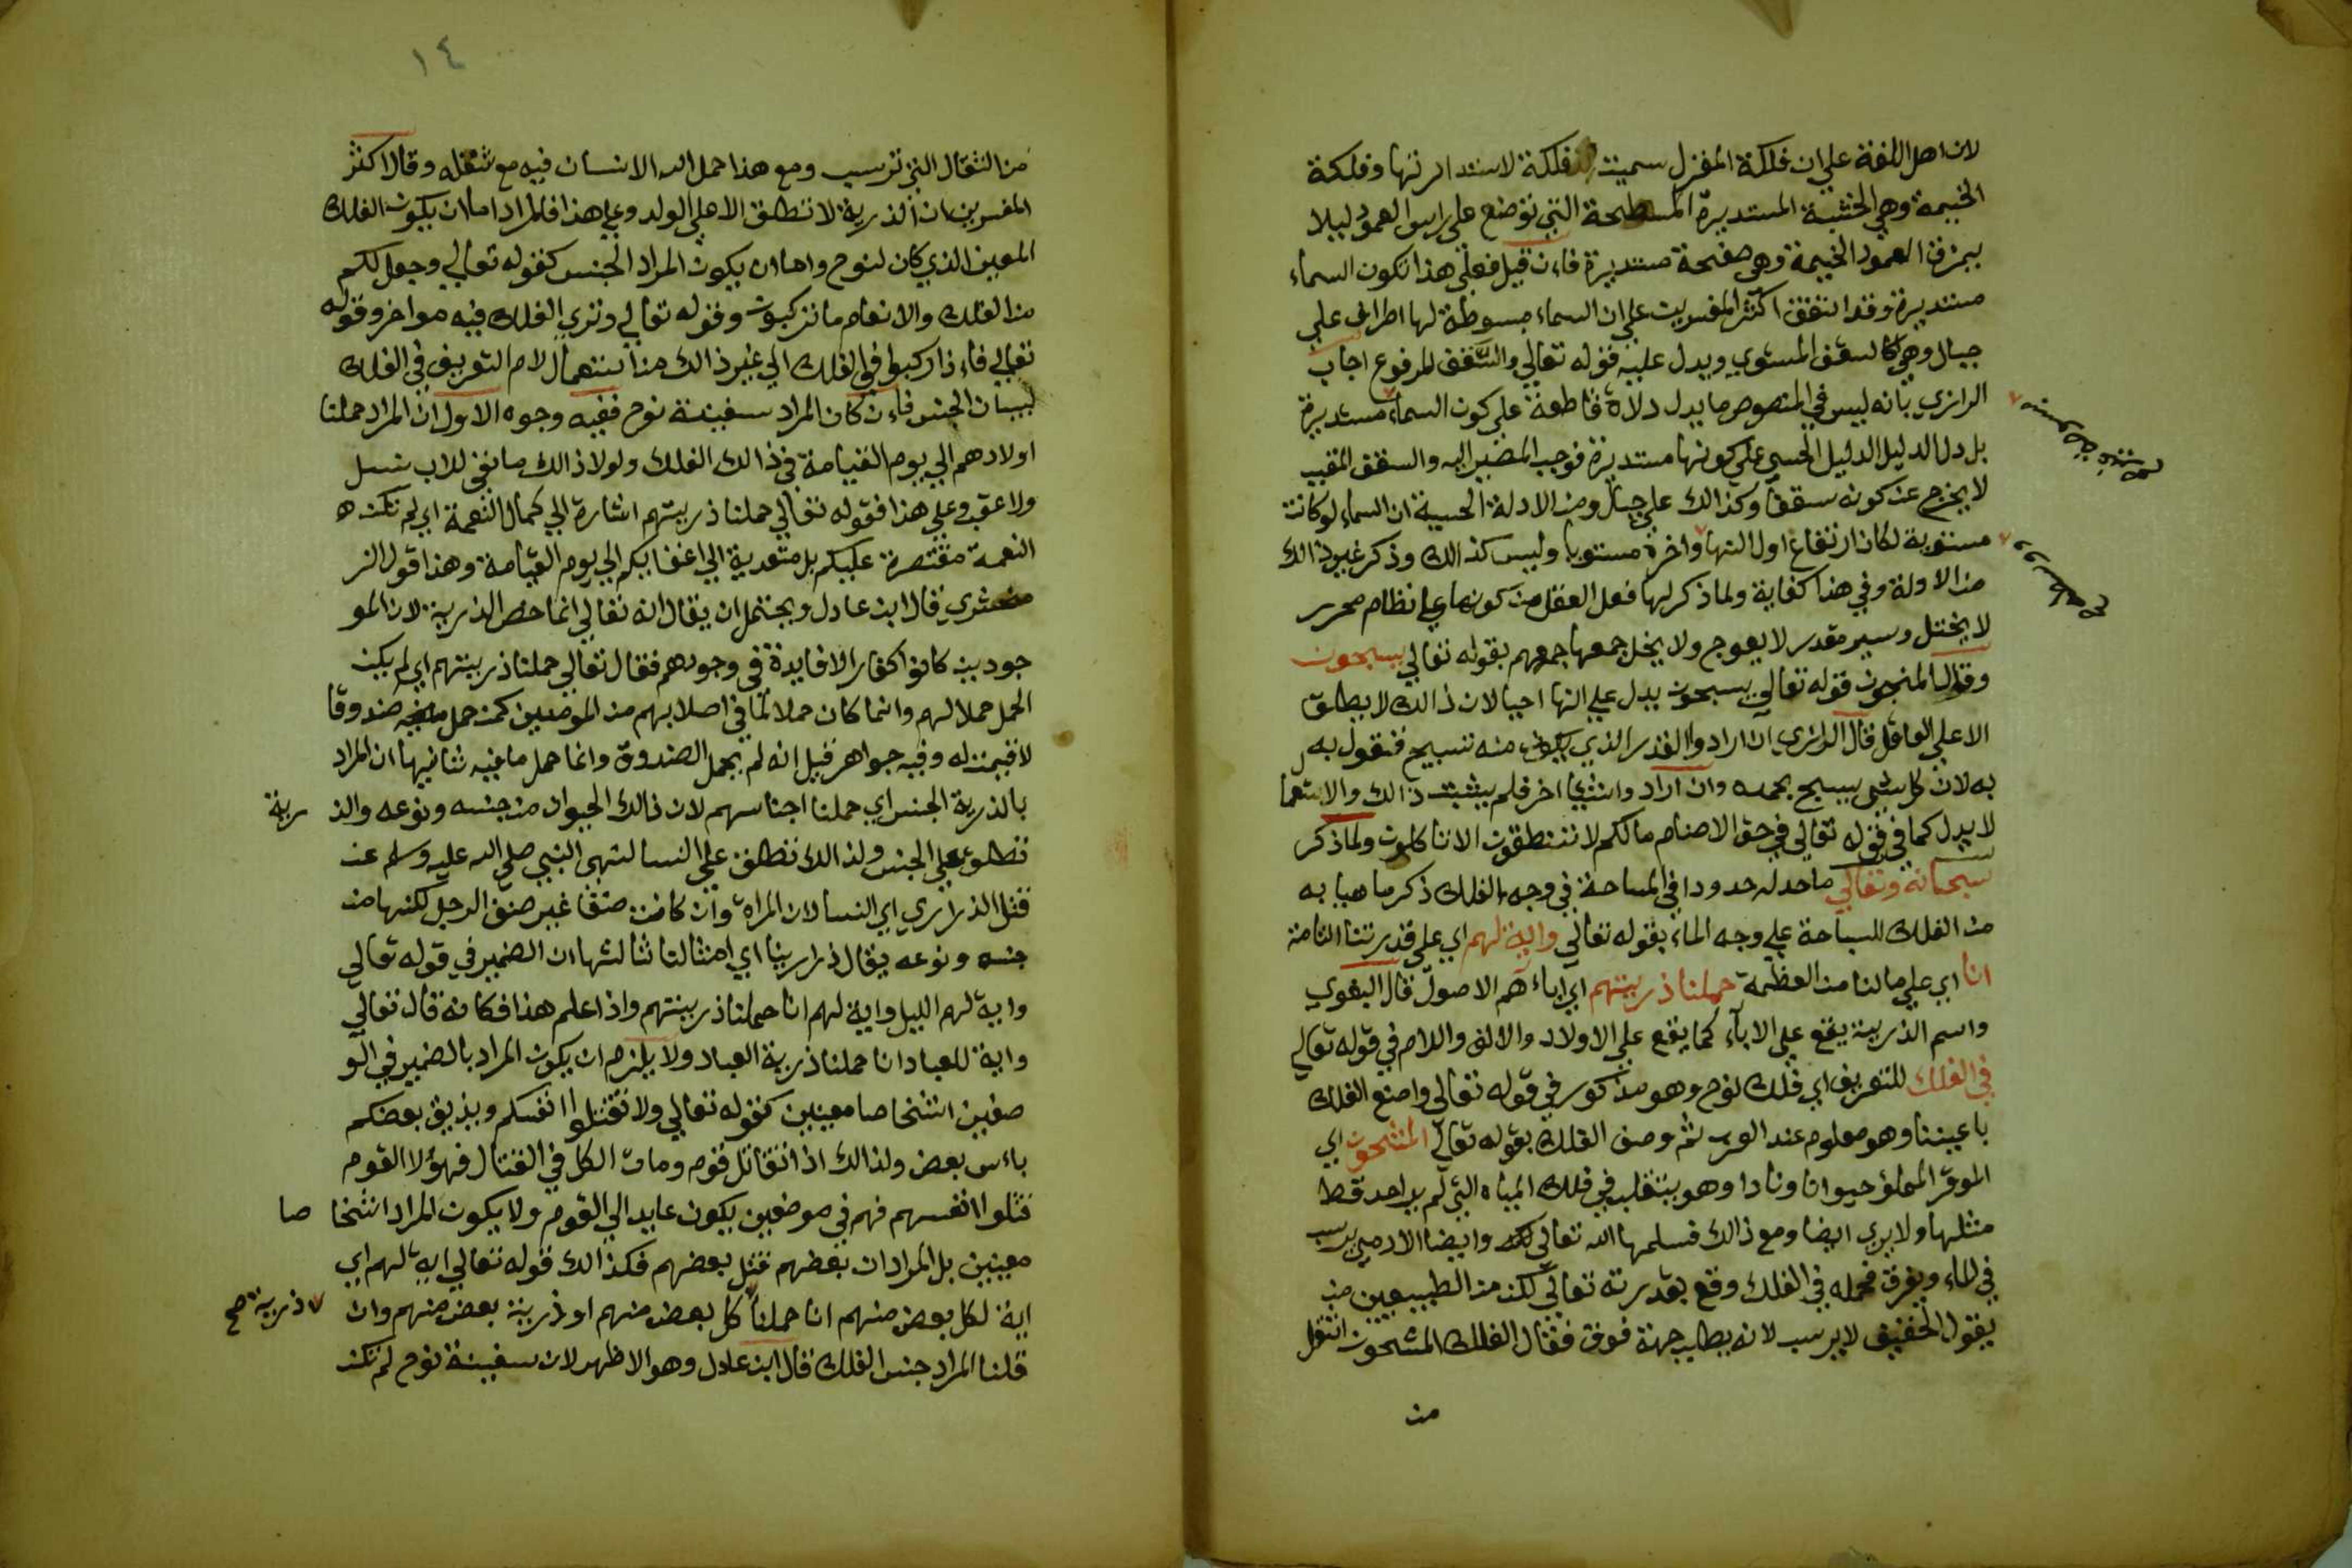 لان اهل اللغة علي ان فلكة المغزل سميت فلكة لاستدارتها وفلكة
الخيمة وهي الخشبة المستديرة المسطحة التي توضع علي راس العمود ليلا
يمزق العمود الخيمة وهي صفحة مستديرة فاءن قيل فعلي هذا تكون السماء
مستديرة وقد اتفق اكثر المفسرين علي ان السماء مبسوطة لها اطراف علي
جبال وهي كالسقف المستوي ويدل عليه قوله تعالي والسقف المرفوع اجاب
الرازي بانه ليس في النصوص ما يدل دلالة قاطعة علي كون السماء مستديرة
بل دل الدليل الحسي علي كونها مستديرة فوجب المصير اليه والسقف المقبب
لا يخرج عن كونه سقفا وكذالك علي جبال ومن الادلة الحسية ان السماء لو كانت
مستوية لكان ارتفاع اول النهار واخره مستويا وليس كذالك وذكر غير ذالك
من الادلة وفي هذا كفاية ولما ذكر لها فعل العقل من كونها علي نظام محرر
لا يختل وسير مقدر لا يعوج ولا يخل جمعها جمعهم بقوله تعالي يسبحون
وقال المنجمون قوله تعالي يسبحون يدل علي انها احيا لان ذالك لا يطلق
الا علي العاقل قال الرازي ان ارادوا القدر الذي يكون منه تسبيح فنقول به
به لان كل شي يسبح بحمده وان ارادوا شيا اخر فلم يثبت ذالك والاستعما
لا يدل كما في قوله تعالي في حق الاصنام ما لكم لا تنطقون الا تاكلون ولما ذكر
سبحانه وتعالي ما حد له حدودا في السباحة في وجه الفلك ذكر ما هيا به
من الفلك للسباحة علي وجه الماء بقوله تعالي واية لهم اي علي قدرتنا التامة
انا اي علي ما لنا من العظمة حملنا ذريتهم اي اباءهم الاصول قال البغوي
واسم الذرية يقع علي الاباء كما يقع علي الاولاد والالف واللام في قوله تعالي
في الفلك للتعريف اي فلك نوح وهو مذكور في قوله تعالي واصنع الفلك
باعيننا وهو معلوم عند العرب ثم وصف الفلك بقوله تعالي المشحون اي
الموقر المملؤ حيوانا ونادا وهو يتقلب في تلك المياه التي لم ير احد قط
مثلها ولا يري ايضا ومع ذالك فسلمها الله تعالي وايضا الادمي يرسب
في الماء ويغرق فحمله في الفلك وقع بقدرته تعالي لكن من الطبيعيين من
يقول الخفيف لا يرسب لانه يطلب جهة فوق فقال الفلك المشحون اثقل
من
١٤
من الثقال التي ترسب ومع هذا حمل الله الانسان فيه مع ثقله وقال اكثر
المفسرين ان الذرية لا تطلق الا علي الولد وعلي هذا فالمراد اما ان يكون الفلك
المعين الذي كان لنوح واما ان يكون المراد الجنس كقوله تعالي وجعل لكم
من الفلك والانعام ما تركبون وقوله تعالي وتري الفلك فيه مواخر وقوله
تعالي فاءذا ركبوا في الفلك الي غير ذالك من استعمال لام التعريف في الفلك
لبيان الجنس فاءن كان المراد سفينة نوح ففيه وجوه الاول ان المراد حملنا
اولادهم الي يوم القيامة في ذالك الفلك ولولا ذالك ما بقي للاب نسل
ولا عقب وعلي هذا فقوله تعالي حملنا ذريتهم اشارة الي كمال النعمة اي لم تكن ه
النعمة مقتصرة عليكم بل متعدية الي اعقابكم الي يوم القيامة وهذا قول الز
مخشري قال ابن عادل ويحتمل ان يقال انه تعالي انما خص الذرية لان المو
جودين كانوا كفارا لا فايدة في وجودهم فقال تعالي حملنا ذريتهم اي لم يكن
الحمل حملا لهم وانما كان حملا لما في اصلابهم من المومنين كمن حمل صندوقا
لا قيمة له وفيه جواهر قيل انه لم يحمل الصندوق وانما حمل ما فيه ثانيها ان المراد
بالذرية الجنس اي حملنا اجناسهم لان ذالك الحيوان من جنسه ونوعه والذ رية
تطلق علي الجنس ولذالك تطلق علي النسا لنهي النبي صلي الله عليه وسلم عن
قتل الذراري اي النسا لان المراه وان كانت صنفا غير صنف الرجل لكنها من
جنسه ونوعه يقال ذرارينا اي امثالنا ثالثها ان الضمير في قوله تعالي
واية لهم الليل واية لهم انا حملنا ذريتهم واذا علم هذا فكانه قال تعالي
واية للعباد انا حملنا ذرية العباد ولا يلزم ان يكون المراد بالضمير في المو
ضعين اشخاصا معينين كقوله تعالي ولا تقتلوا انفسكم ويذيق بعضكم
باءس بعض ولذالك اذا تقاتل قوم ومات الكل في القتال فهؤلا القوم
قتلوا انفسهم فهم في موضعين يكون عايد الي القوم ولا يكون المراد اشخا صا
معينين بل المراد ان بعضهم قتل بعضهم فكذالك قوله تعالي اية لهم اي
اية لكل بعض منهم انا حملنا كل بعض منهم او ذرية بعض منهم وان ذرية صح
قلنا المراد جنس الفلك قال ابن عادل وهو الاظهر لان سفينة نوح لم تكن